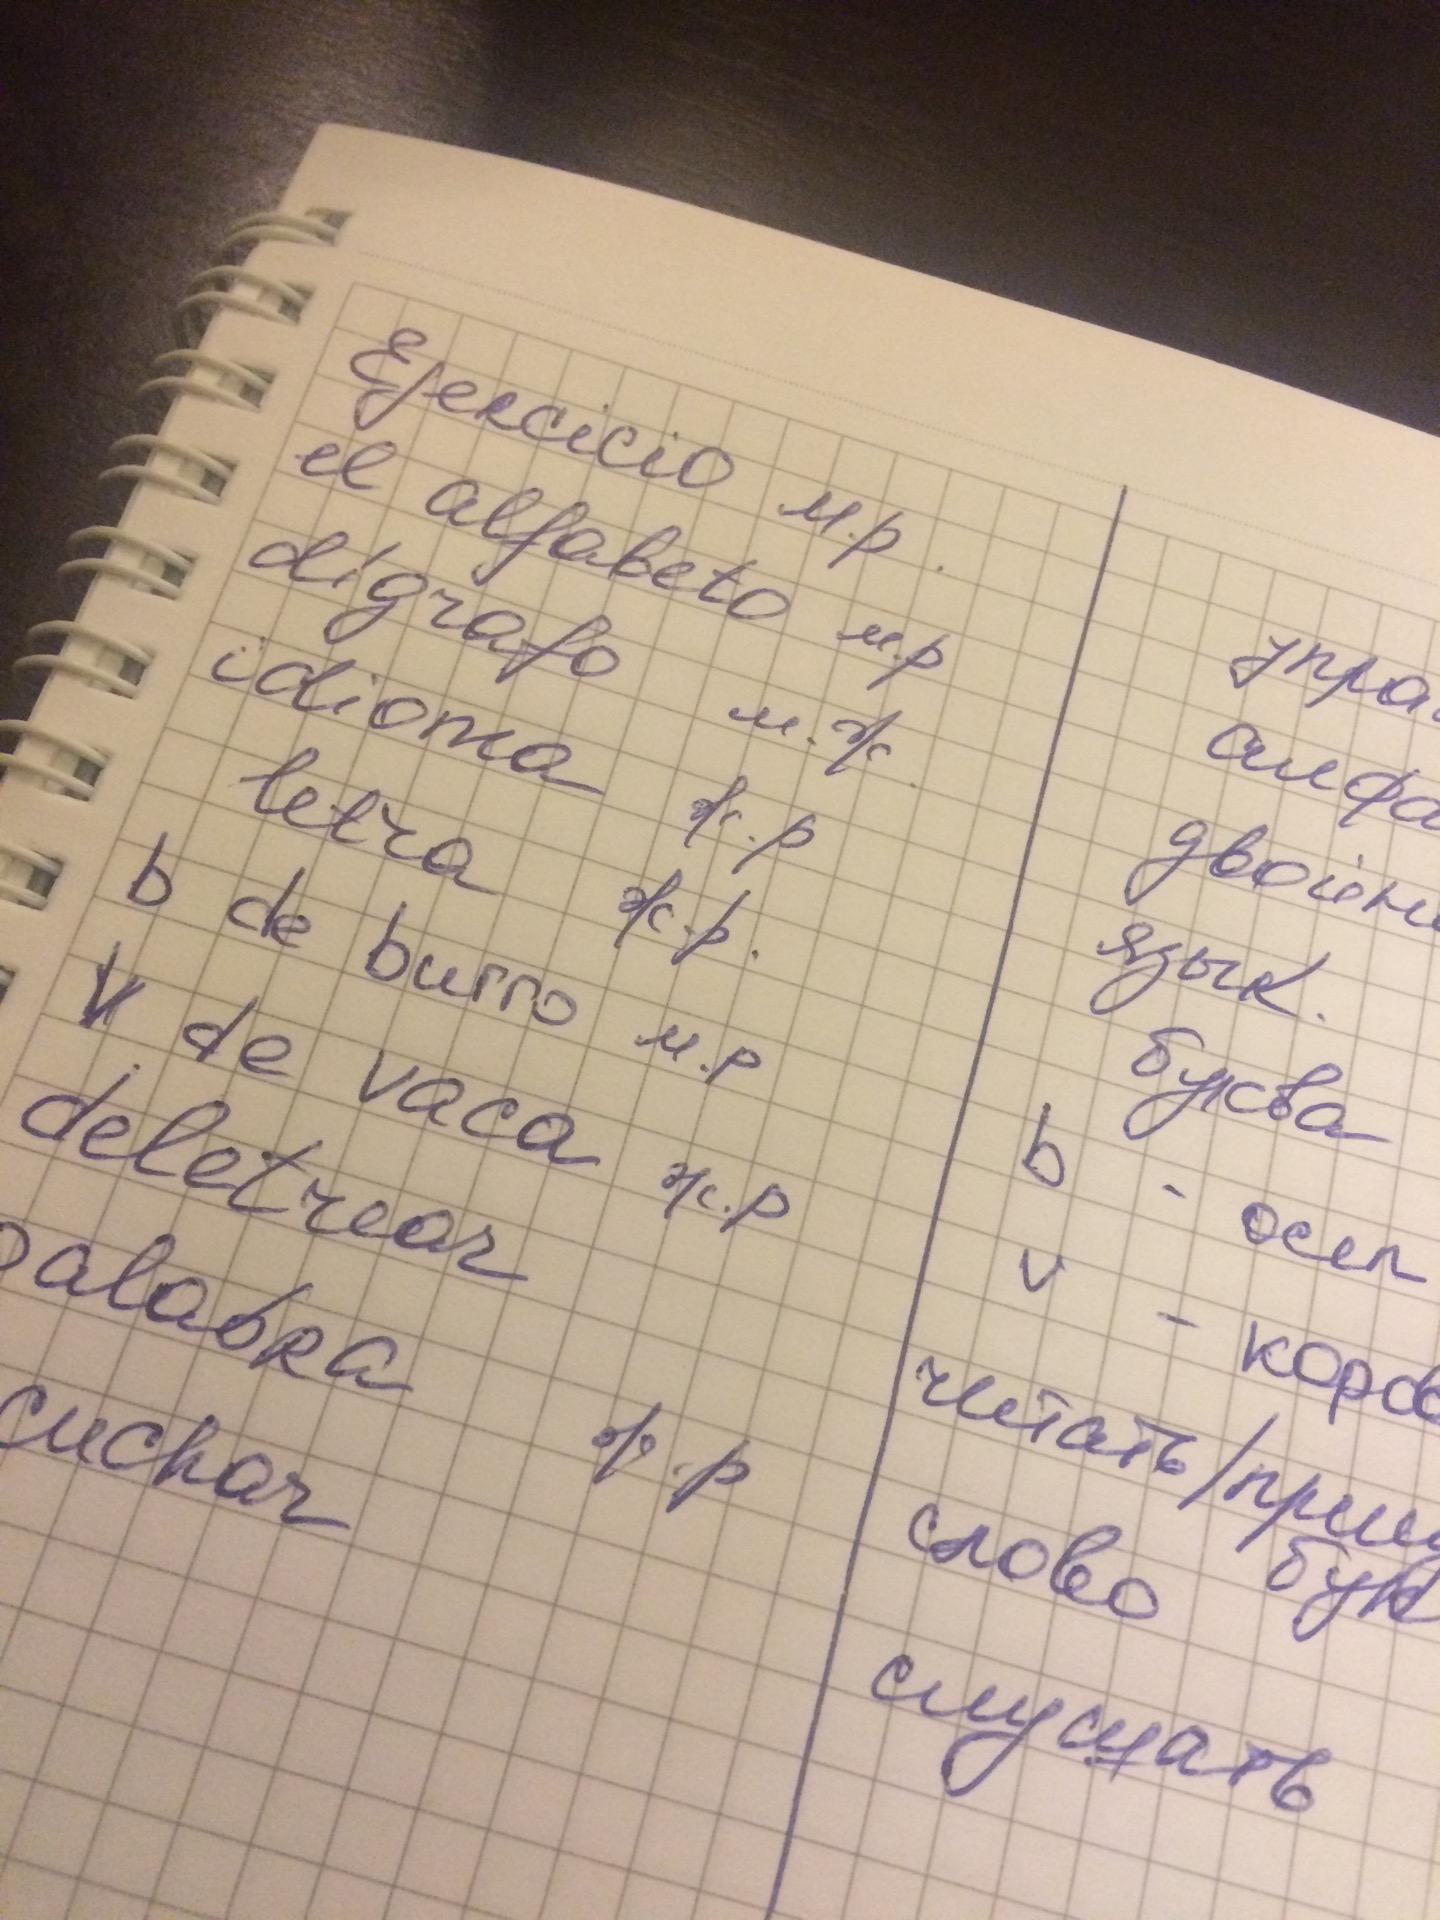 Ejercicio м.р.
el alfabeto м.р
dígrafo м.ж.
idioma ж.р
letra ж.р.
b de burro м.р
V de vaca ж.р
deletrear
palabra ж.р
cuchar
упра
алфа
двойн
язык.
буква
b - осел
v - коров
читать/прои
бук
слово
слушать